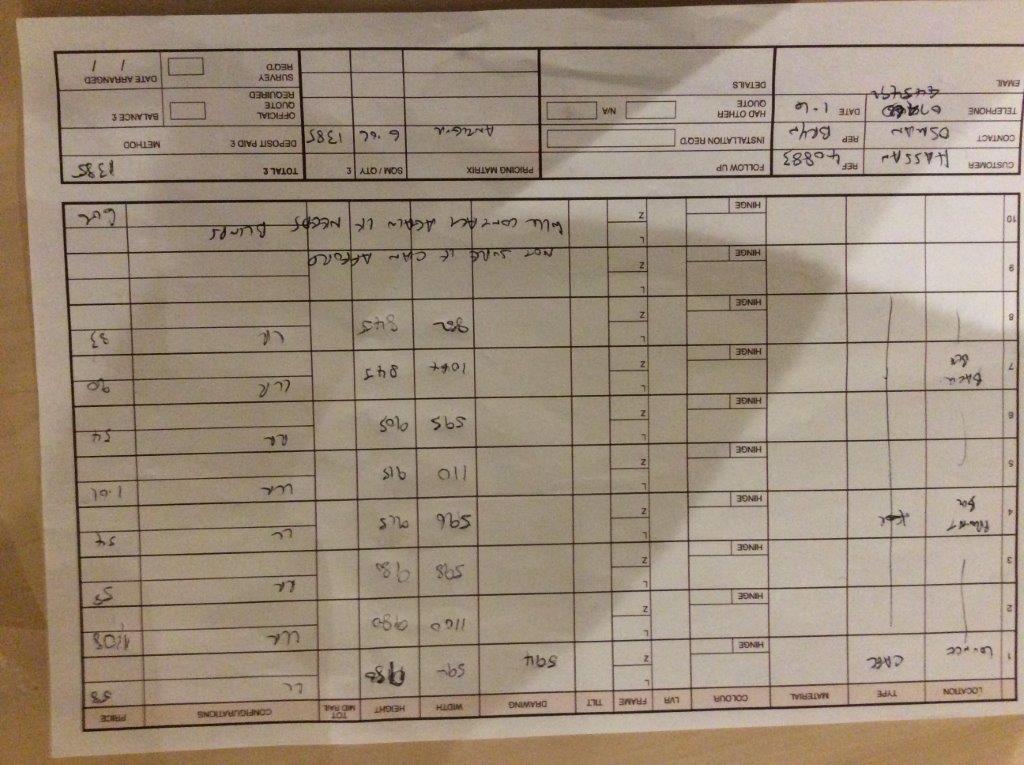 LOCATION TYPE MATERIAL COLOUR LVR FRAME TILT DRAWING WIDTH HEIGHT TOT MID RAIL CONFIGURATIONS PRICE
1 LOUNGE CAFE HINGE L Z 594 592 980 LL 58
2 HINGE L Z 1160 980 LLR 1.08
3 HINGE L Z 598 980 LR
4 FRONT BED HINGE L Z 596 925 LL 54
5 HINGE L Z 1110 915 LLR 1.01
6 HINGE L Z 595 905 54
7 BACK BED HINGE L Z 1064 845 LLR 90
8 HINGE L Z 845 LR 83
9 HINGE L Z NOT SURE IF CAN AFFORD
10 HINGE L Z WILL CONTACT AGAIN IF NEEDS BLINDS 6.02
CUSTOMER HASSAN REF 40883 FOLLOW UP PRICING MATRIX SQM / QTY £ TOTAL £ 1385
CONTACT OSMAN REP BRYN INSTALLATION REQ'D ANTIGUA 6.02 1385 DEPOSIT PAID £ METHOD
TELEPHONE DATE 1-6 HAD OTHER QUOTE N/A OFFICIAL QUOTE REQUIRED BALANCE £
EMAIL DETAILS SURVEY REQ'D DATE ARRANGED / /